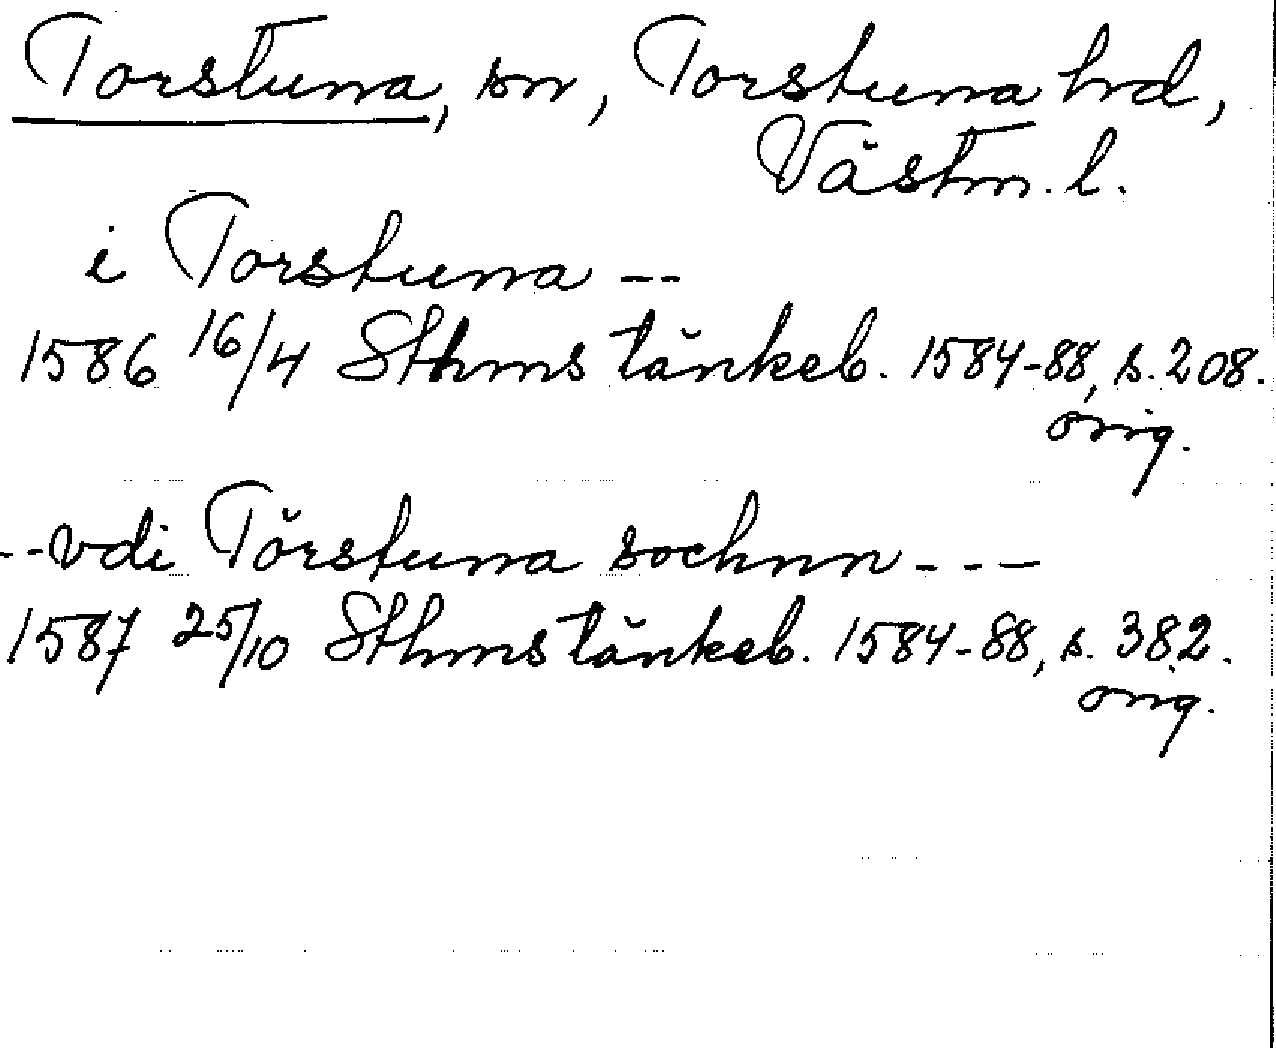 Torstuna, sn, Torstuna hrd,
Västm. l.
i Torstuna --
1586 16/4 Sthms tänkeb. 1584-88, s. 208.
orig.
--vdi Törstuna sochnn ---
1587 25/10 Sthms tänkeb. 1584-88, s. 382.
orig.